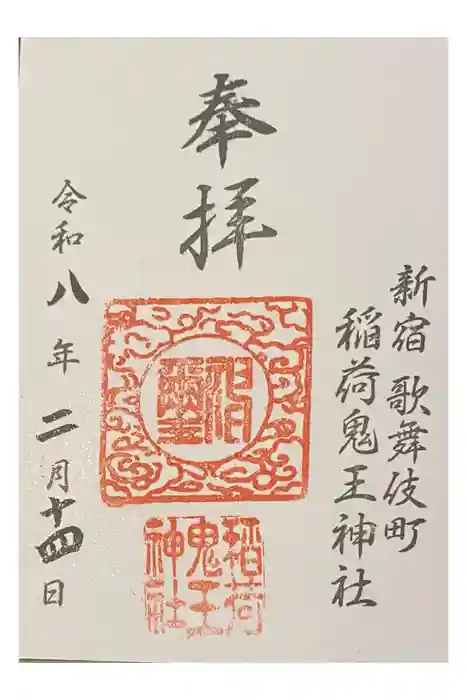 新宿 歌舞伎町
稲荷鬼王神社
奉拝
稲荷
鬼王
神社
令和八年二月十四日